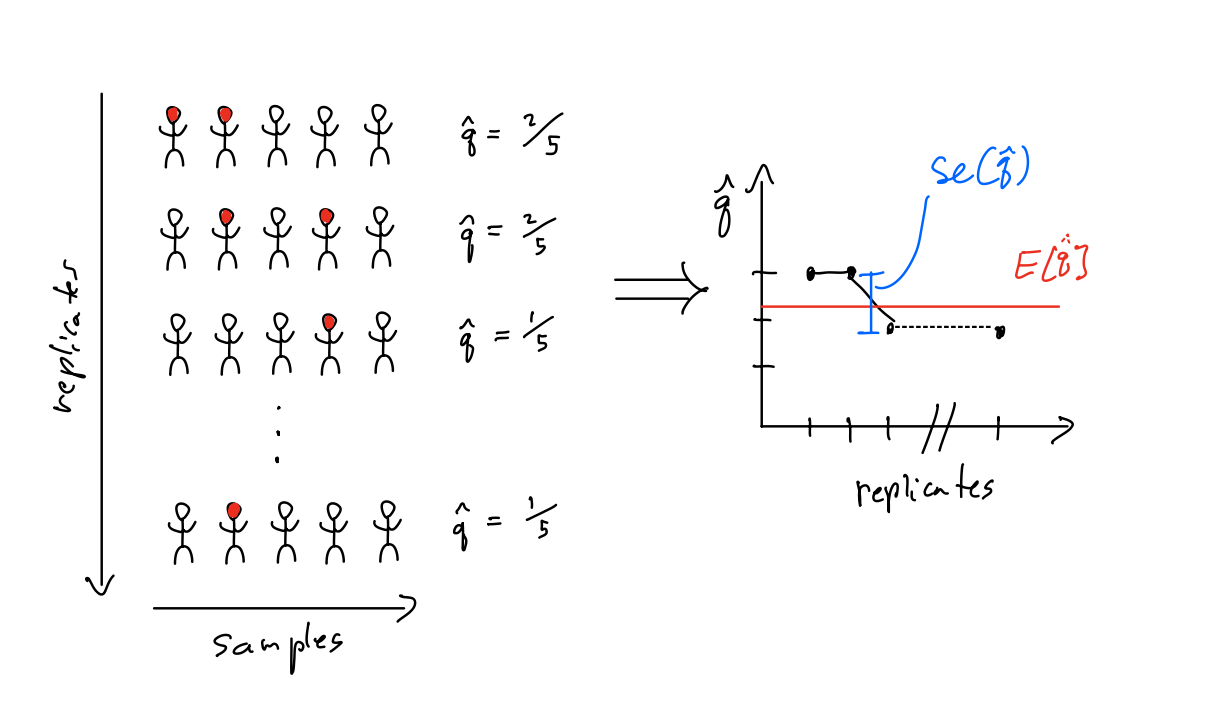 replicates
q̂ = 2/5
q̂ = 2/5
q̂ = 1/5
q̂ = 1/5
samples
⇒
q̂
se(q̂)
E[q̂]
replicates